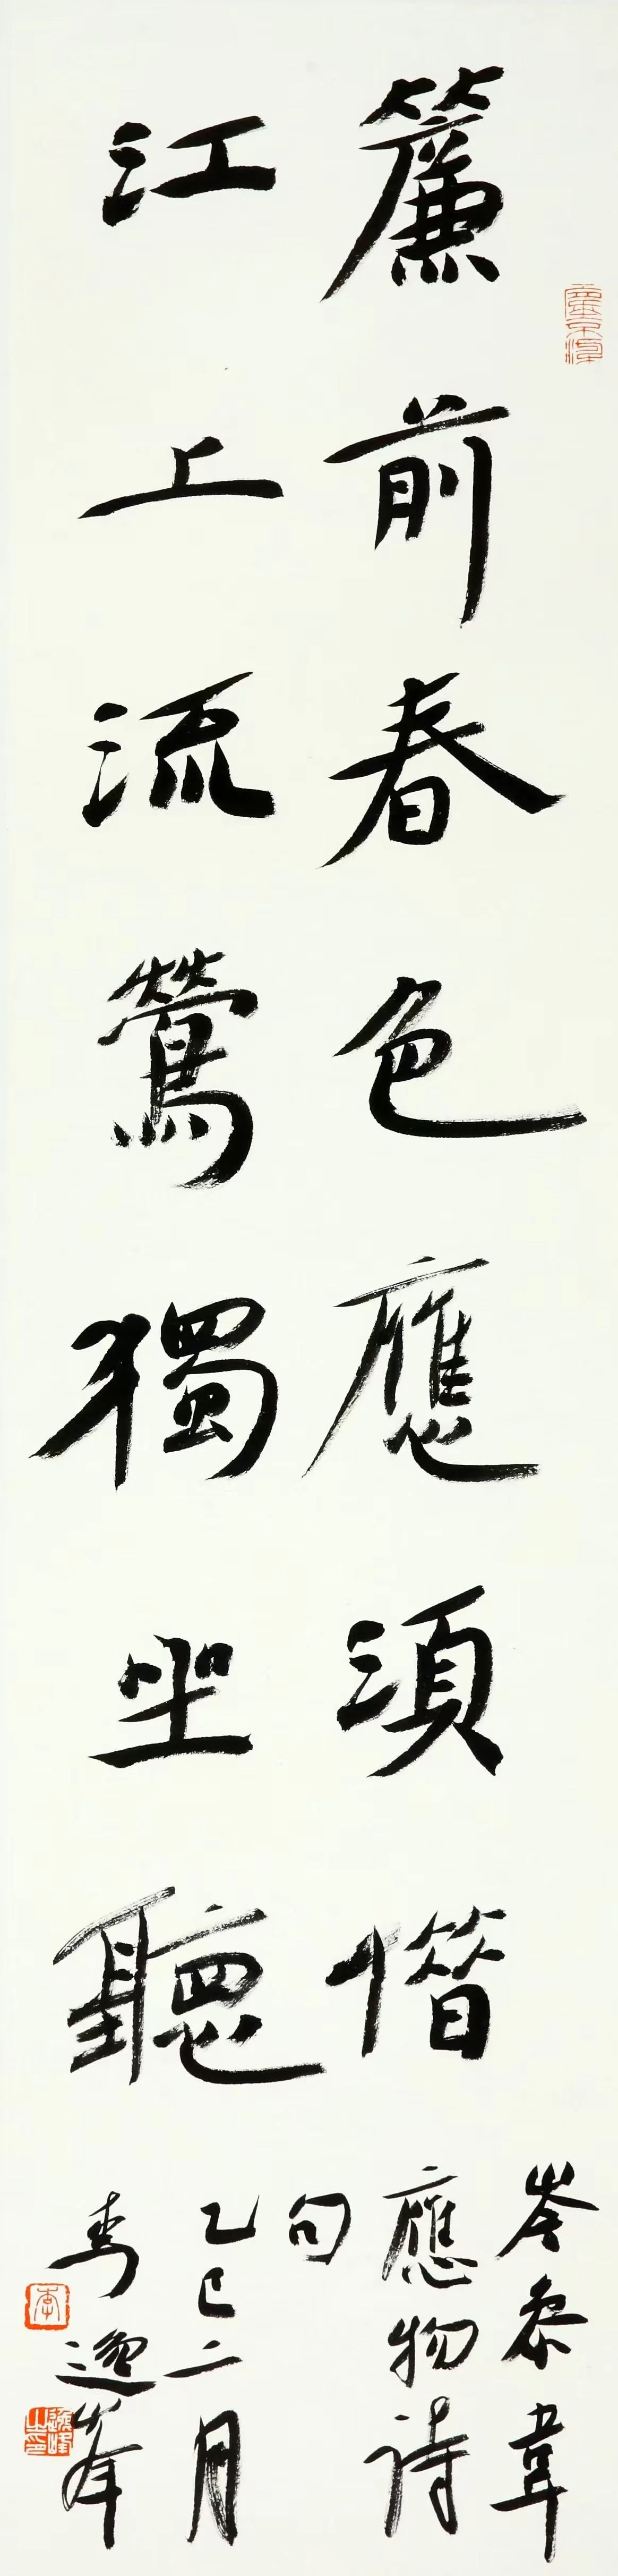 簾前春色應須惜
江上流鶯獨坐聽
岑參韋
應物詩
句
乙巳二月
李逸峰
李